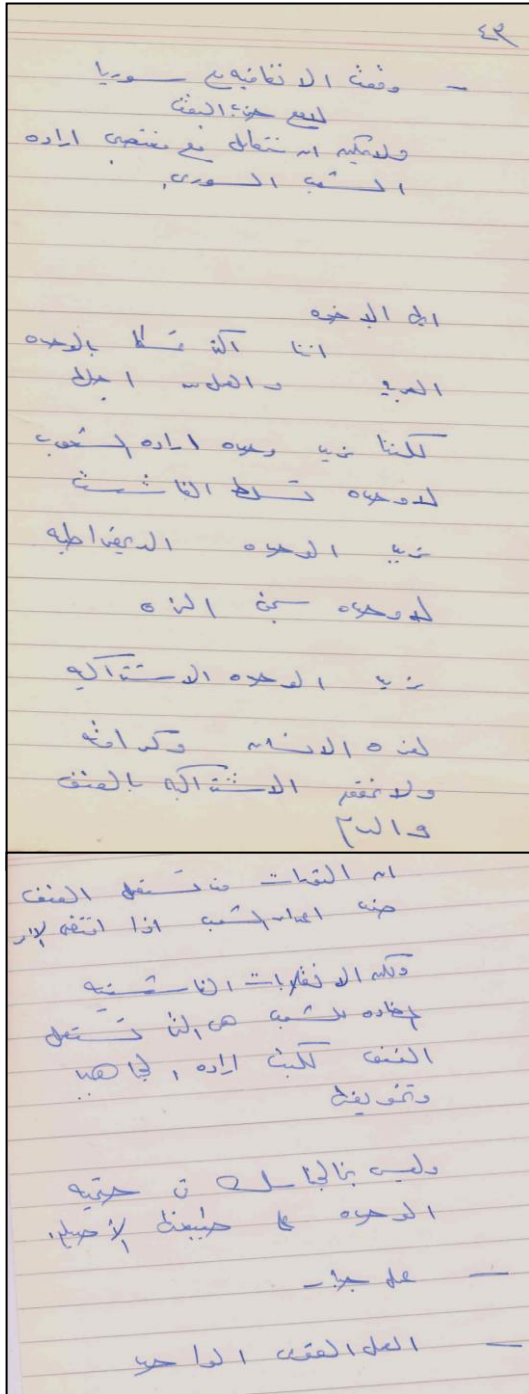 ٤٣
— وقعت الاتفاقيه مع سوريا
لا مع حزب البعث
ولا يمكن ان نتعامل مع مغتصبى اراده
الشعب السورى
ايها الاخوه
اننا اكثر تمسكا بالوحده
العربيه والعمل من اجلها
لكننا نريد وحده اراده الشعوب
لا وحده تسلط الفاشست
نريد الوحده الديمقراطيه
لا وحده سجن المزه
نريد الوحده الاشتراكيه
لعزه الانسان وكرامته
ولا تحقق الاشتراكيه بالعنف
والدم
ان الثورات قد تستعمل العنف
ضد اعداء الشعب اذا اقتضى الامر
ولكن الانقلابات الفاشستيه
المضاده للشعب هى التى تستعمل
العنف لكبت اراده الجماهير
وتخويفها
وليس بنا اى شك فى حتميه
الوحده على طبيعتها الاصيله
— على جبار
— العمل العربى الواحد